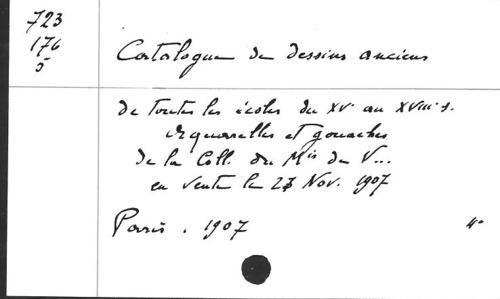 723
176
5
Catalogue de dessins anciens
de toutes les écoles du XVe au XVIIIe s.
Aquarelles et gouaches
de la Coll. du Mis de V...
en vente le 27 Nov. 1907
Paris. 1907 4°